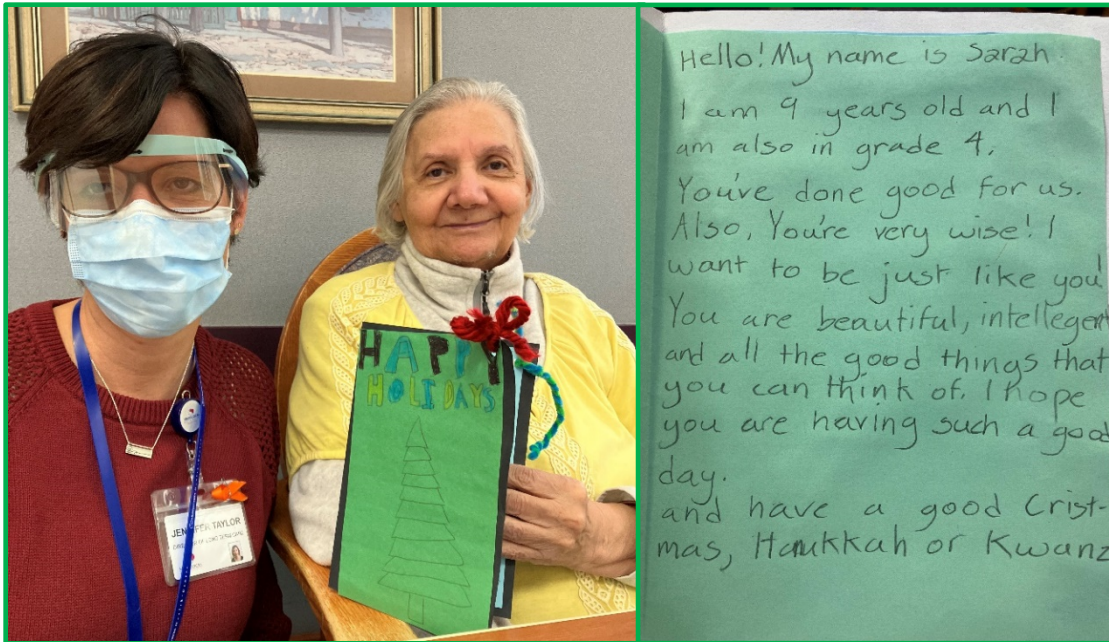 HAPPY
HOLIDAYS
JENNIFER TAYLOR
Hello! My name is Sarah.
I am 9 years old and I
am also in grade 4.
You've done good for us.
Also, You're very wise! I
want to be just like you!
You are beautiful, intellegent
and all the good things that
you can think of. I hope
you are having such a good
day.
and have a good Crist-
mas, Hanukkah or Kwanz